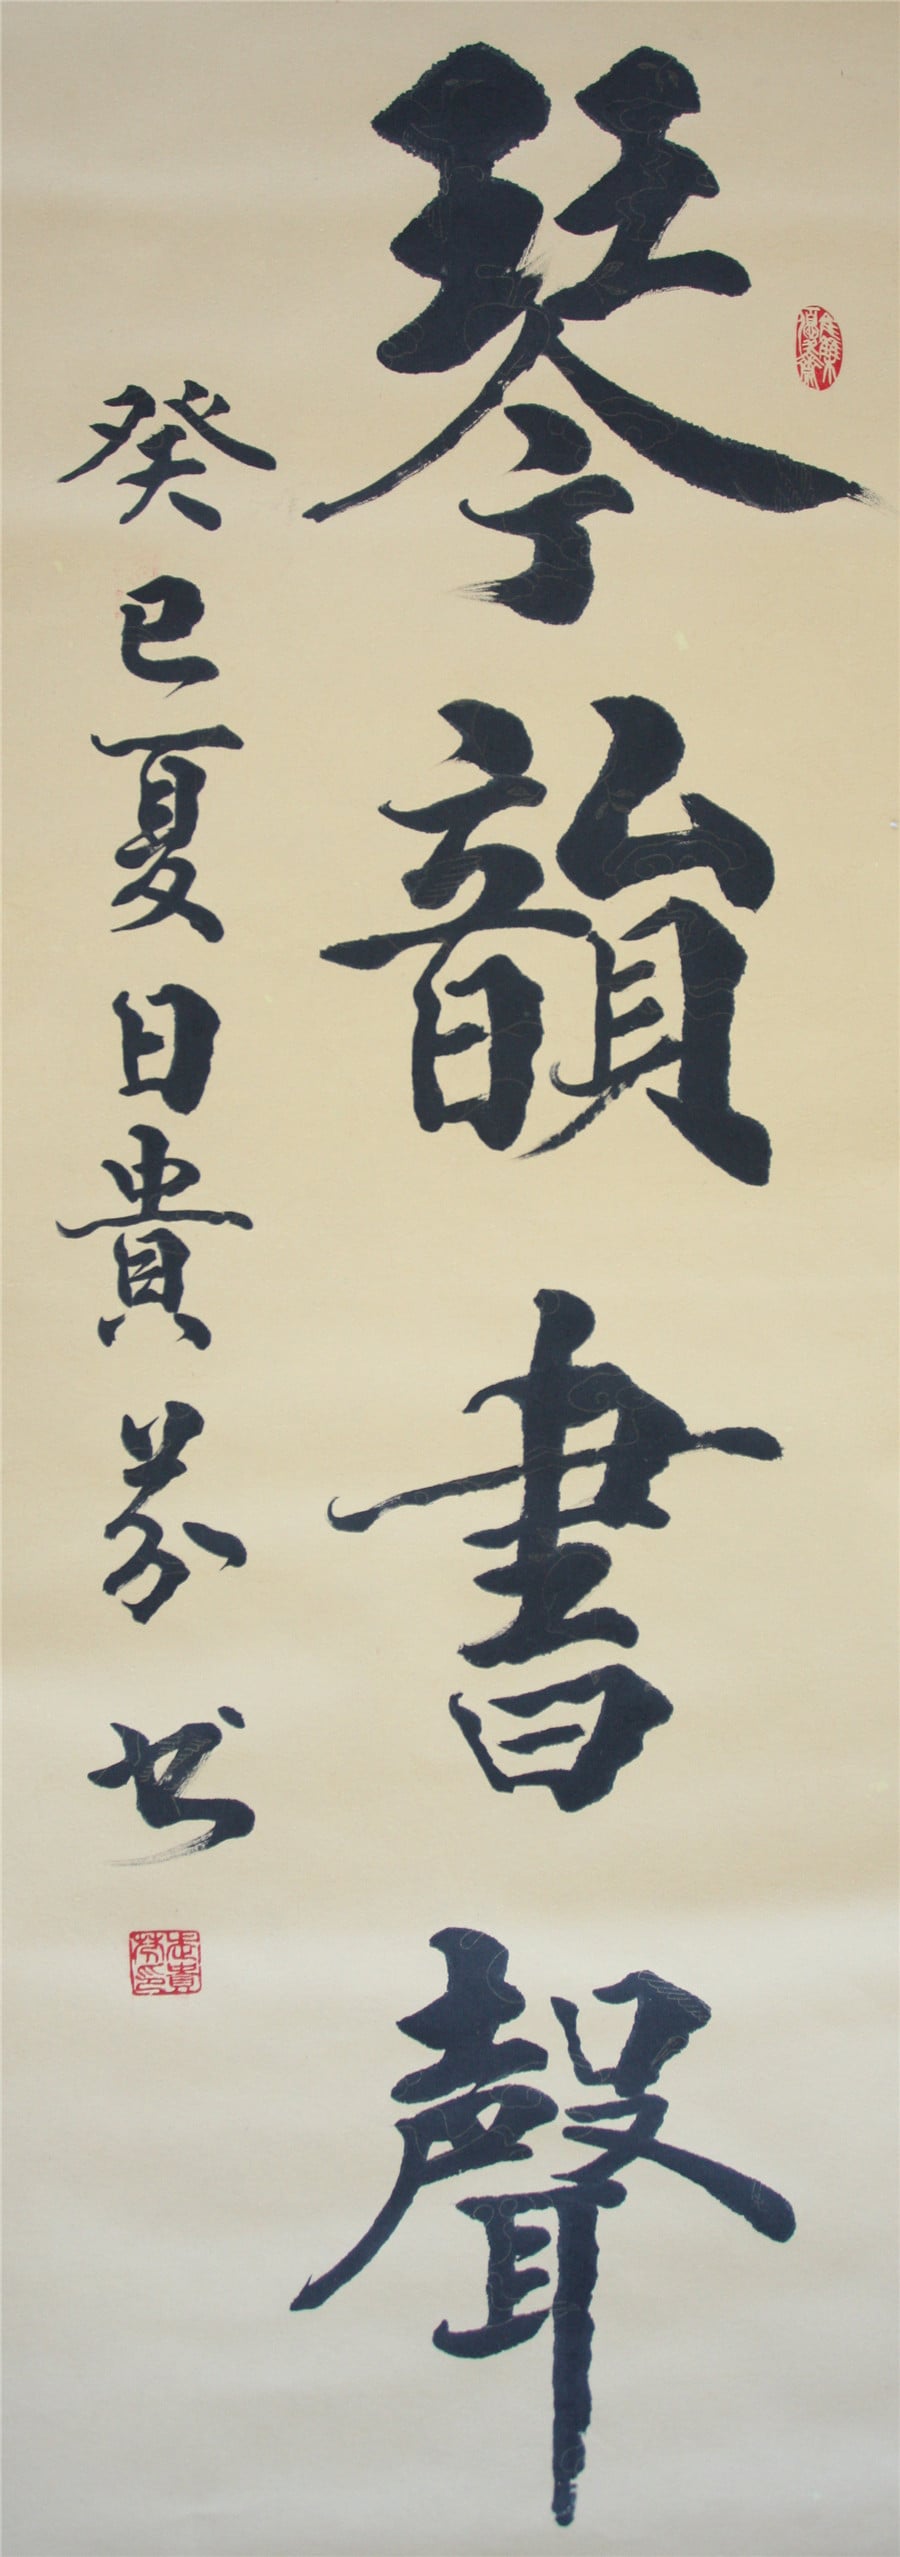 琴韻書聲
癸巳夏日貴芬书